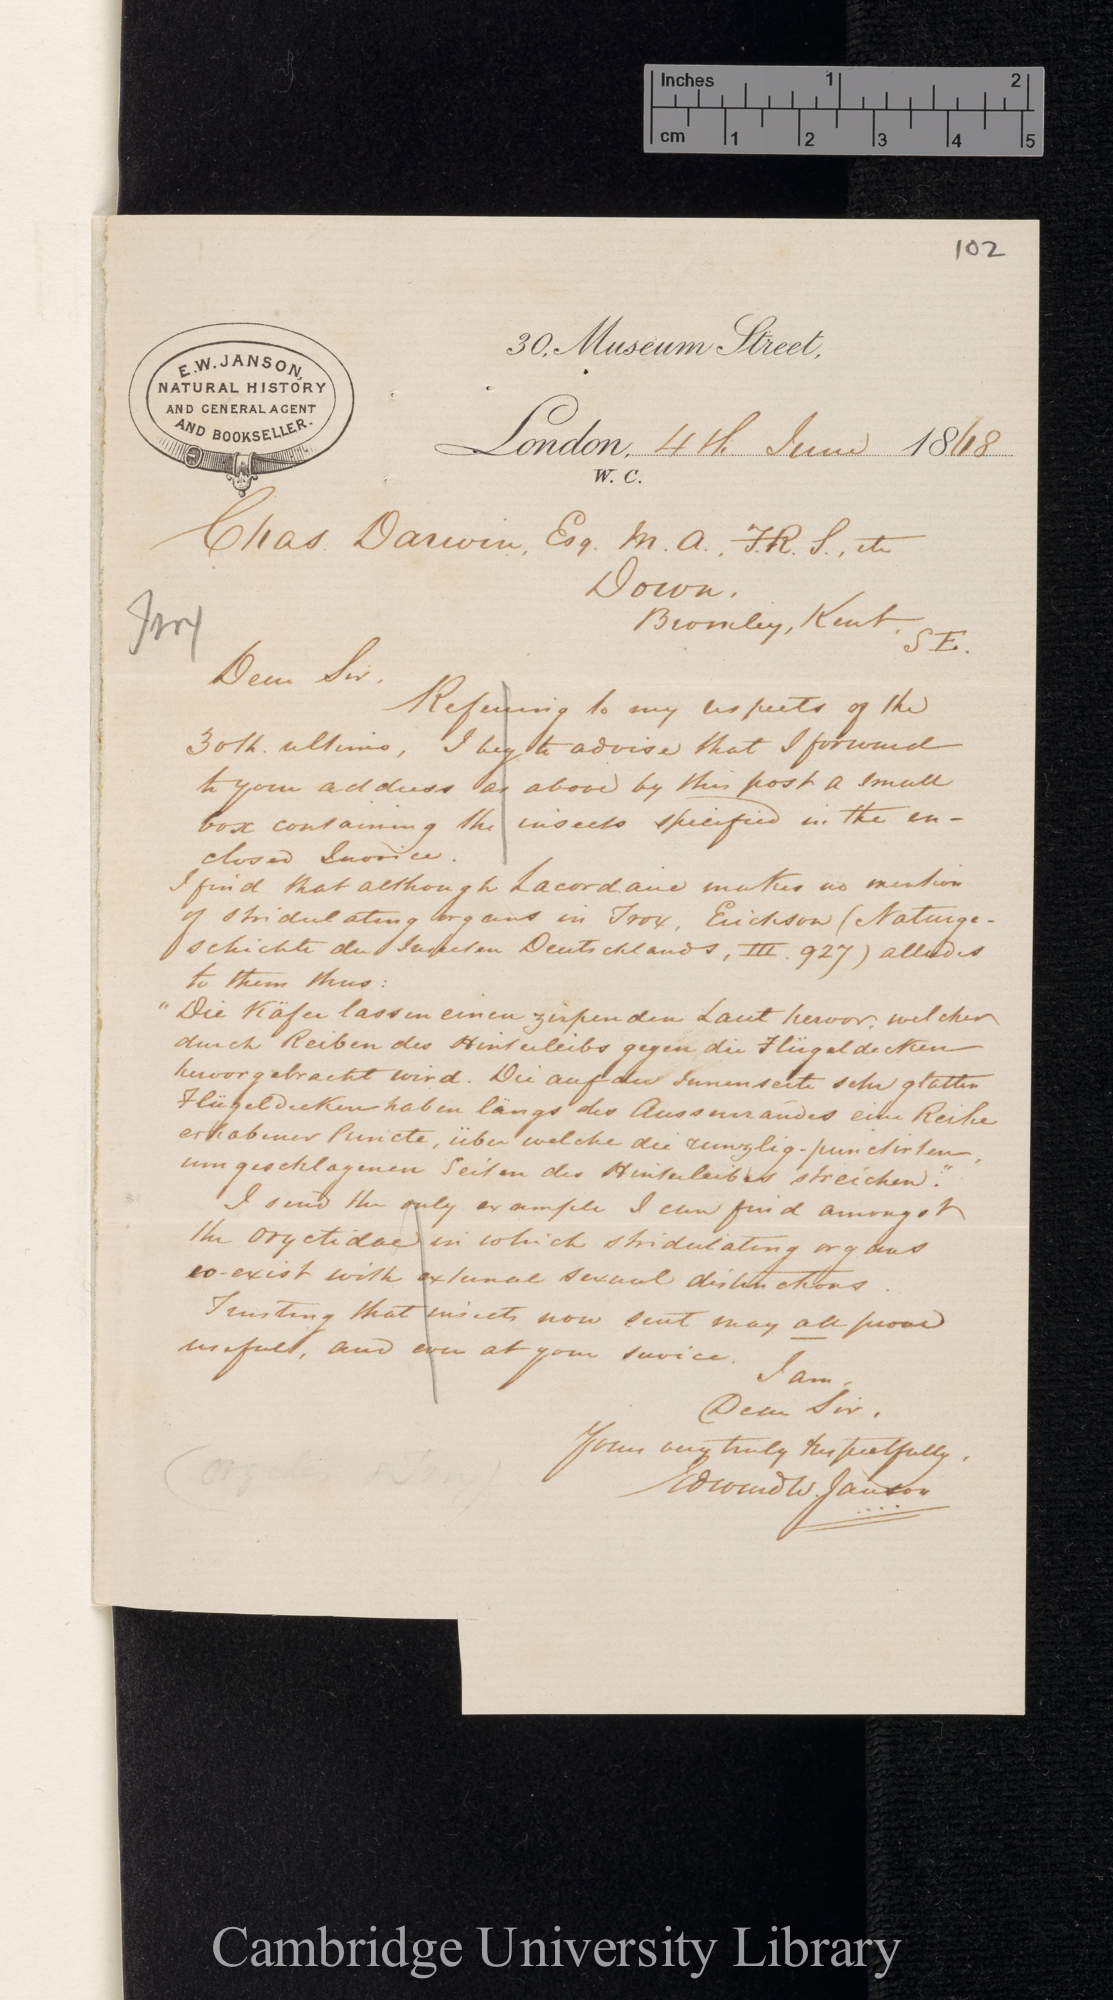 Inches 1 2
cm 1 2 3 4 5
102
E.W. JANSON,
NATURAL HISTORY
AND GENERAL AGENT
AND BOOKSELLER.
30, Museum Street,
London, 4th June 1868
W. C.
Chas. Darwin, Esq. M. A., F.R. S., etc
Down,
Bromley, Kent,
S E.
Trox
Dear Sir,
Referring to my respects of the
30th. ultimo, I beg to advise that I forward
to your address as above by this post a small
box containing the insects specified in the en-
closed Invoice.
I find that although Lacordaire makes no mention
of stridulating organs in Trox, Erichson (Naturge-
schichte der Insecten Deutschlands, III. 927) alludes
to them thus:
"Die Käfer lassen einen zirpenden Laut hervor, welcher
durch Reiben des Hinterleibs gegen die Flügeldecken
hervorgebracht wird. Die auf der Innenseite sehr glatten
Flügeldecken haben längs des Aussenrandes eine Reihe
erhabener Puncte, über welche die runzlig-punctirten,
umgeschlagenen Seiten des Hinterleibes streichen."
I send the only example I can find amongst
the Oryctidae in which stridulating organs
co-exist with external sexual distinctions.
Trusting that insects now sent may all prove
useful, and ever at your service.
I am,
Dear Sir,
Yours very truly & respectfully,
Edward W. Janson
Cambridge University Library